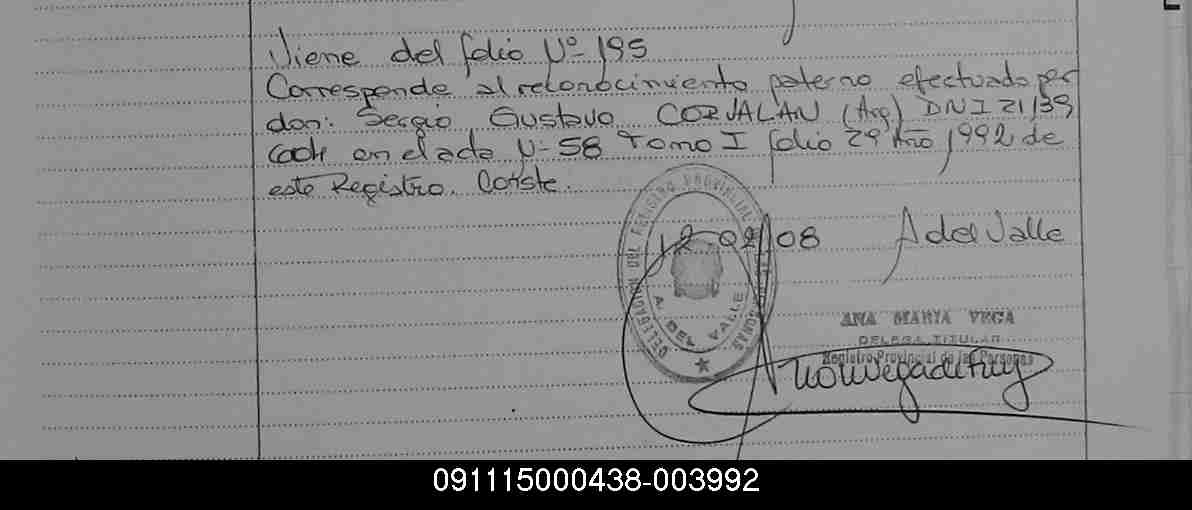 Viene del folio Nº 195
Corresponde al reconocimiento paterno efectuado por
don: Sergio Gustavo CORVALAN (Arg) DNI 21139
en el acta Nº 58 Tomo I folio 29 Año 1992 de
este Registro. Conste.
DELEGACION DEL REGISTRO PROVINCIAL DE LAS PERSONAS
A. DEL VALLE
12 02 08 A del Valle
ANA MARIA VEGA
DELEGA TITULAR
Registro Provincial de las Personas
091115000438-003992